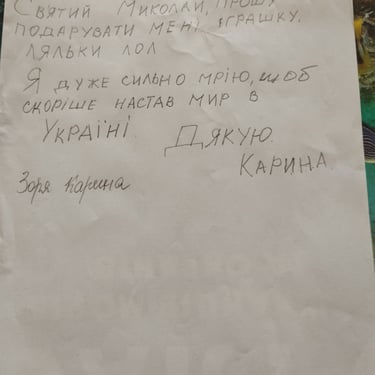 Святий Миколай, прошу
подарувати мені іграшку,
ляльки лол
Я дуже сильно мрію, щоб
скоріше настав мир в
Україні. Дякую.
Карина.
Зоря Карина